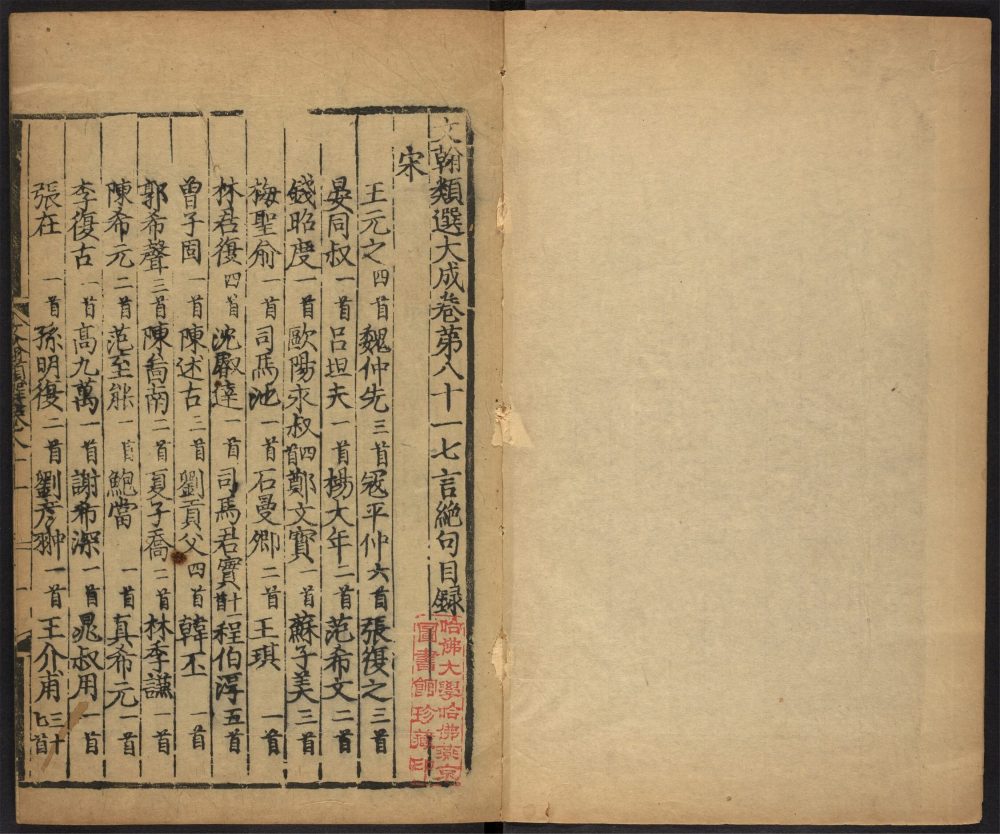 文翰類選大成卷第八十一七言絶句目録
宋
王元之四首魏仲先三首寇平仲六首張復之三首
晏同叔一首呂坦夫一首楊大年二首范希文二首
錢昭度一首歐陽永叔四首鄭文寶一首蘇子美三首
梅聖俞一首司馬池一首石曼卿二首王琪一首
林君復四首沈叡達一首司馬君實十一首程伯淳五首
曾子固一首陳述古二首劉貢父四首韓丕一首
郭希聲三首陳喬南二首夏子喬二首林季謙一首
陳希元二首范至能一首鮑當一首真希元一首
李復古一首高九萬一首謝希深一首晁叔用一首
張在一首孫明復二首劉彥翀一首王介甫三十七首
哈佛大學哈佛燕京
圖書館珍藏印